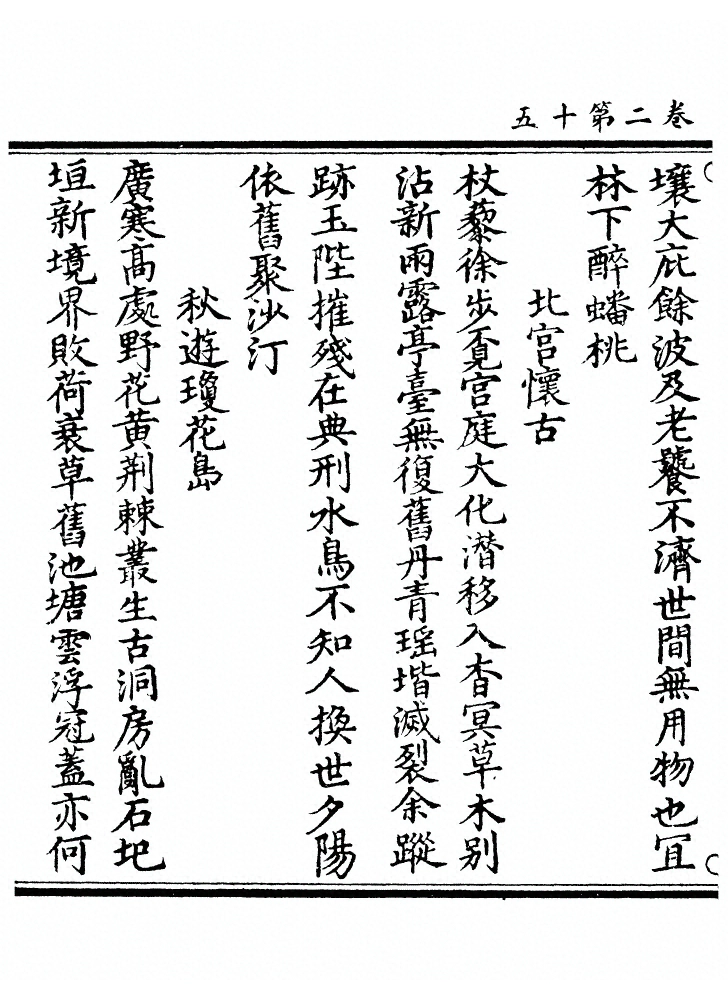 卷二第十五
壤大庇餘波及老饕不濟世間無用物也宜
林下醉蟠桃
北宫懷古
杖藜徐步覔宫庭大化潜移入杳冥草木别
沾新雨露亭臺無復舊丹青瑶堦滅裂余蹤
跡玉陛摧殘在典刑水鳥不知人換世夕陽
依舊聚沙汀
秋遊瓊花島
廣寒高處野花黄荆棘叢生古洞房亂石圯
垣新境界敗荷衰草舊池塘雲浮冠蓋亦何